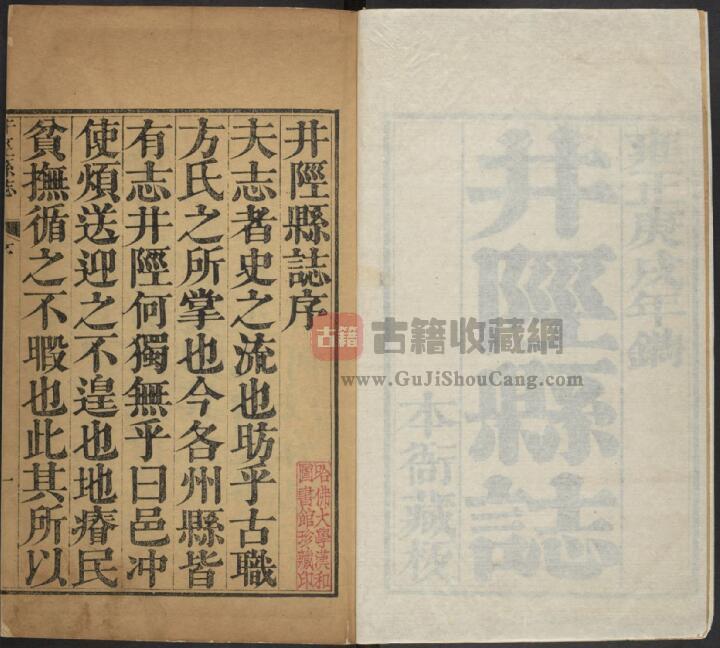 雍正庚戌年鐫
井陘縣誌
本衙藏板
井陘縣誌序
夫志者史之流也昉乎古職
方氏之所掌也今各州縣皆
有志井陘何獨無乎曰邑冲
使煩送迎之不遑也地瘠民
貧撫循之不暇也此其所以
哈佛大學漢和
圖書館珍藏印
古籍
古籍收藏網
www.GuJiShouCang.com